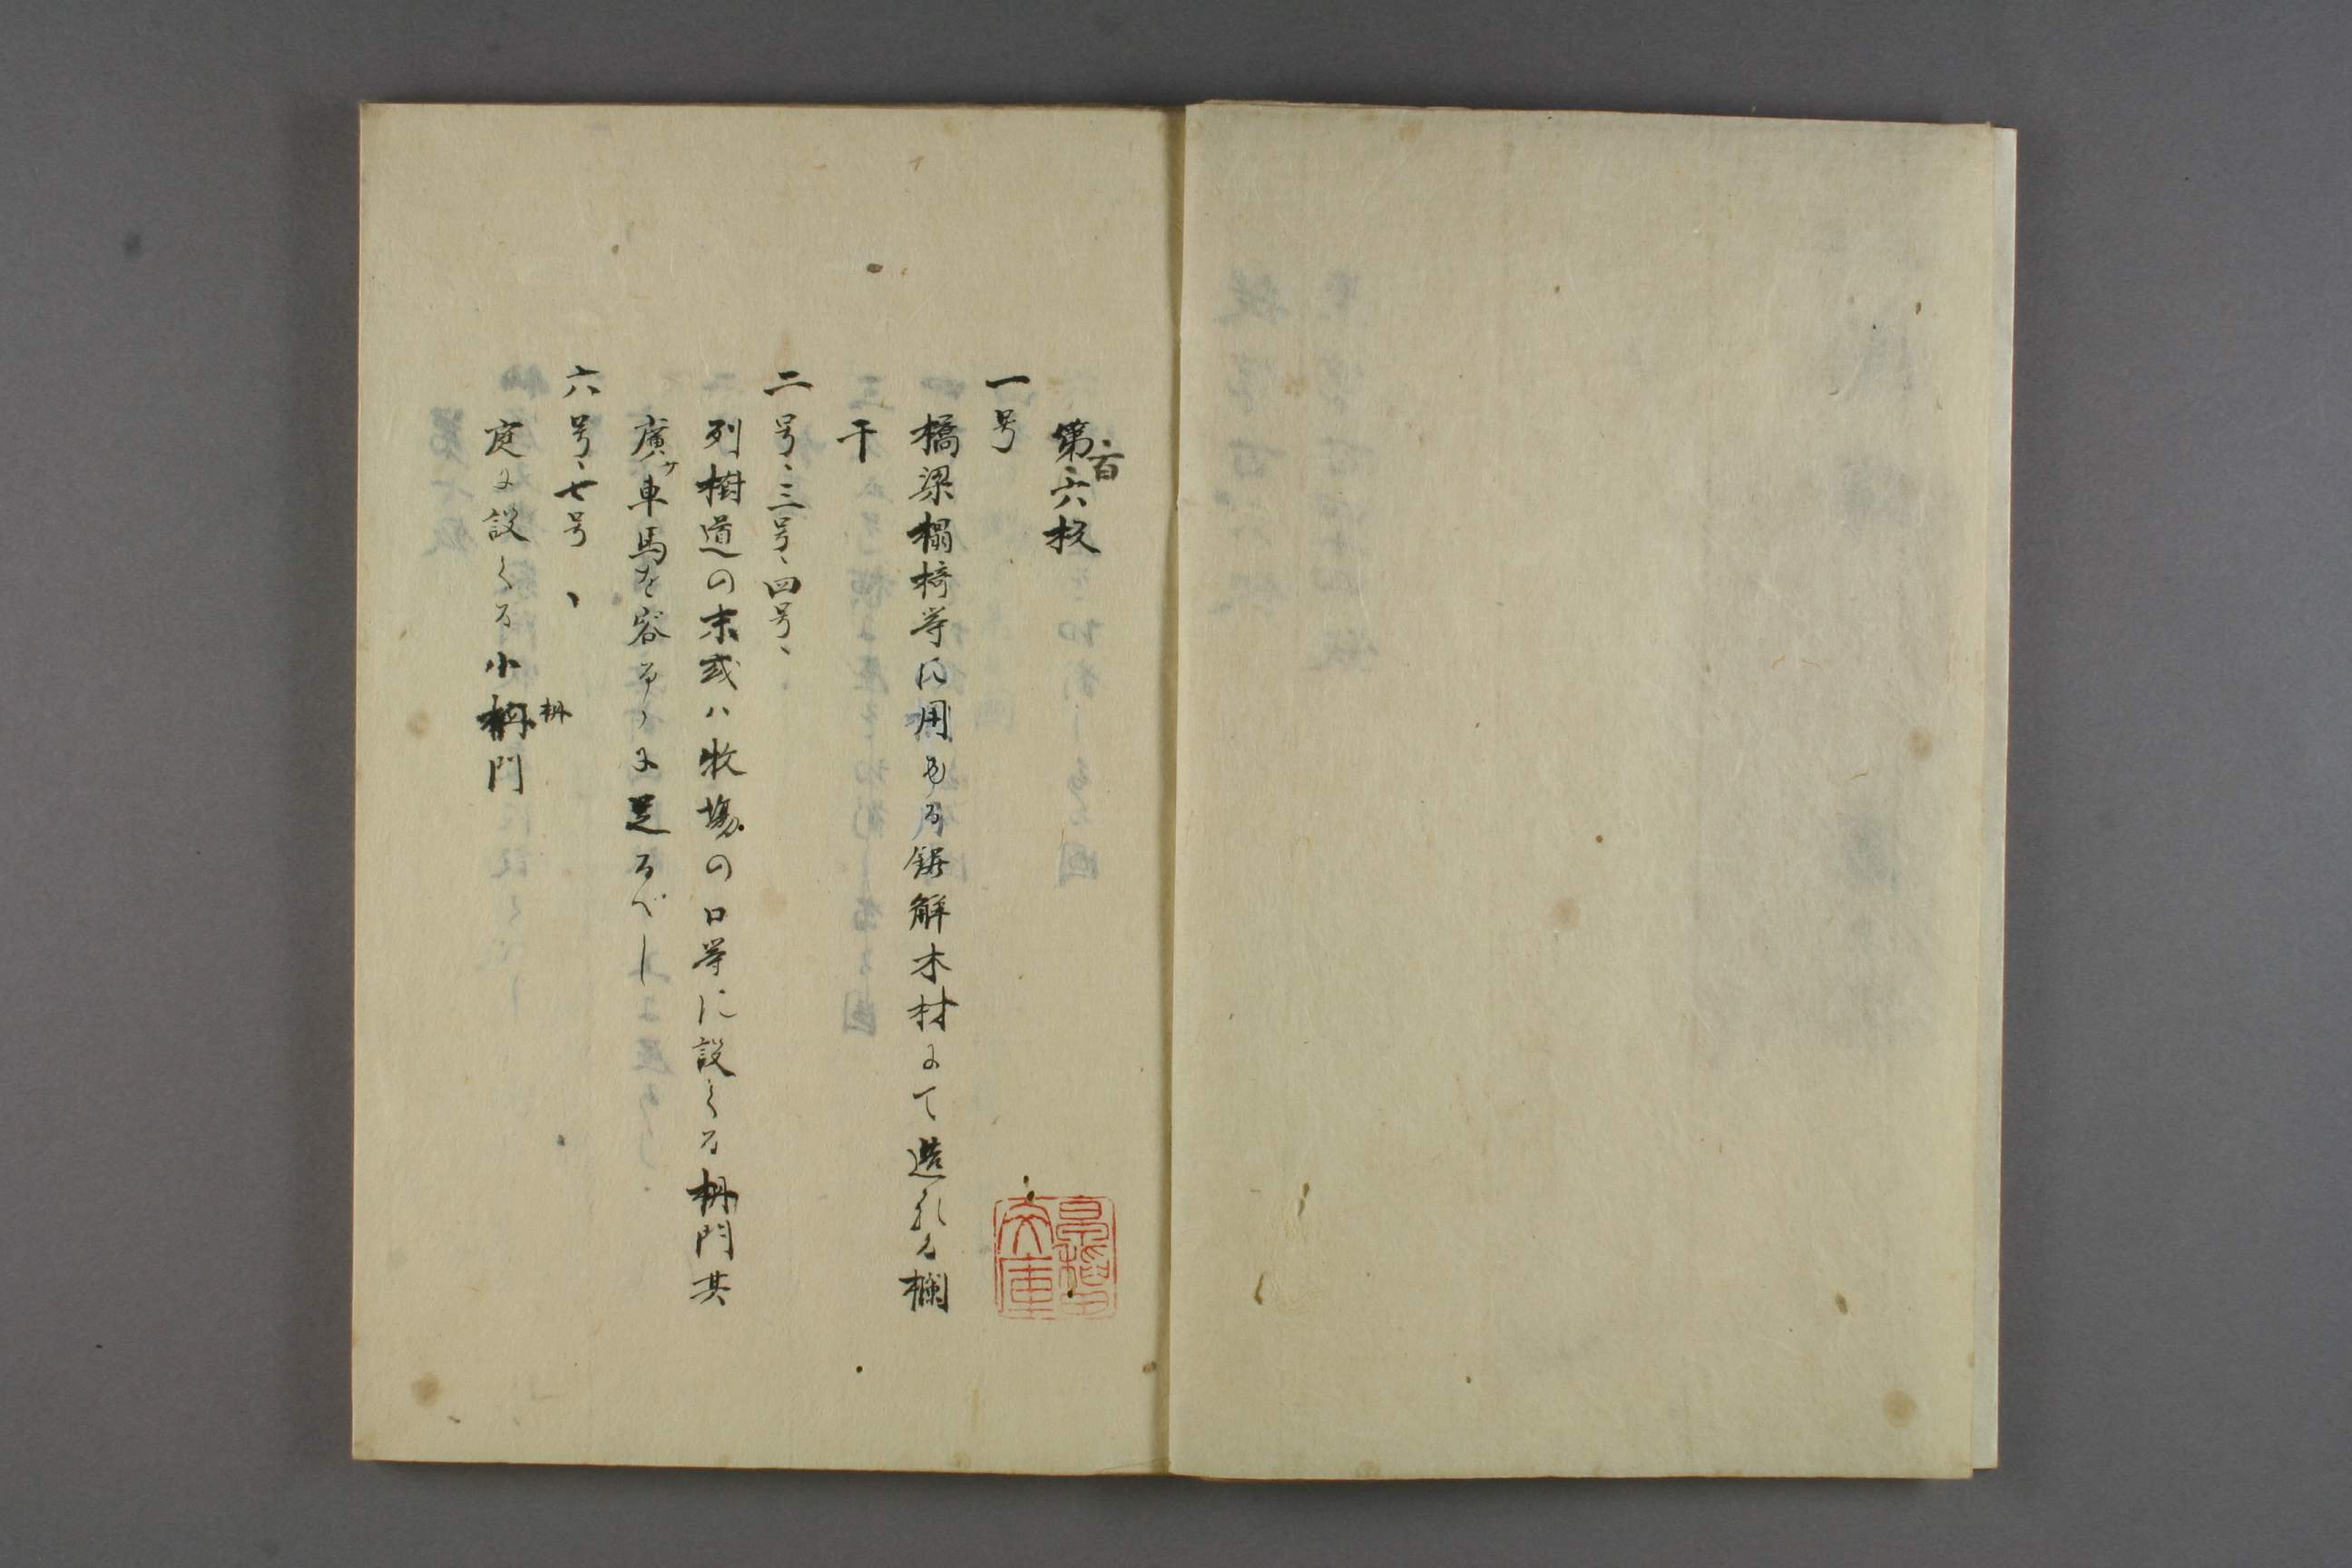 第百六枚
一号
橋梁榻椅等に用ゆる鋸解木材にて造れる欄
干
二号、三号、四号、
列樹道の末或ハ牧場の口等に設くる柵門其
廣ケ車馬を容るゝに足るべし
六号、七号、
庭に設くる小柵門
柵
文庫